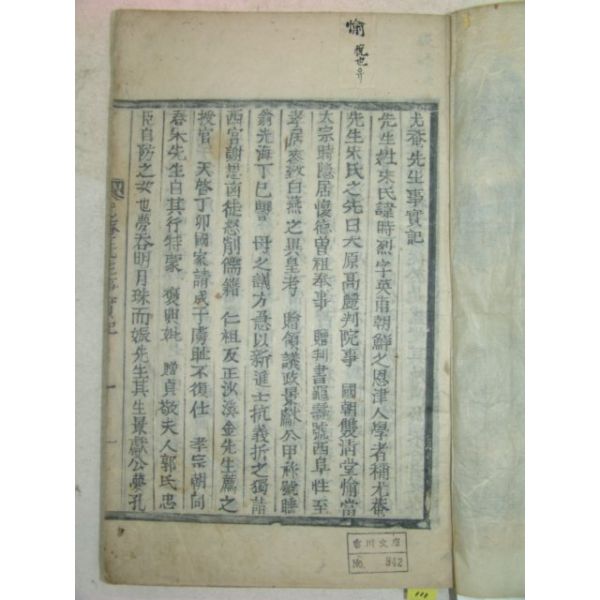 愉 悅也유
尤菴先生事實記
先生姓宋氏諱時烈字英甫朝鮮之恩津人學者稱尤菴
先生宋氏之先曰大原高麗判院事 國朝雙淸堂愉當
太宗時隱居懷德曾祖奉事 贈判書龜壽號西阜性至
孝居喪致白燕之異皇考 贈領議政景獻公甲祚號睡
翁光海丁巳讐 母之議方急以新進士抗義折之獨詣
西宮謝恩兇徒憝削儒籍 仁祖反正沙溪金先生薦之
授官 天啓丁卯國家請成于虜恥不復仕 孝宗朝同
春宋先生白其行特蒙 褒 贈貞敬夫人郭氏忠
臣自防之女也夢呑明月珠而娠先生其生景獻公夢孔
尤菴先生事實記 一
雷川文庫
No. 942